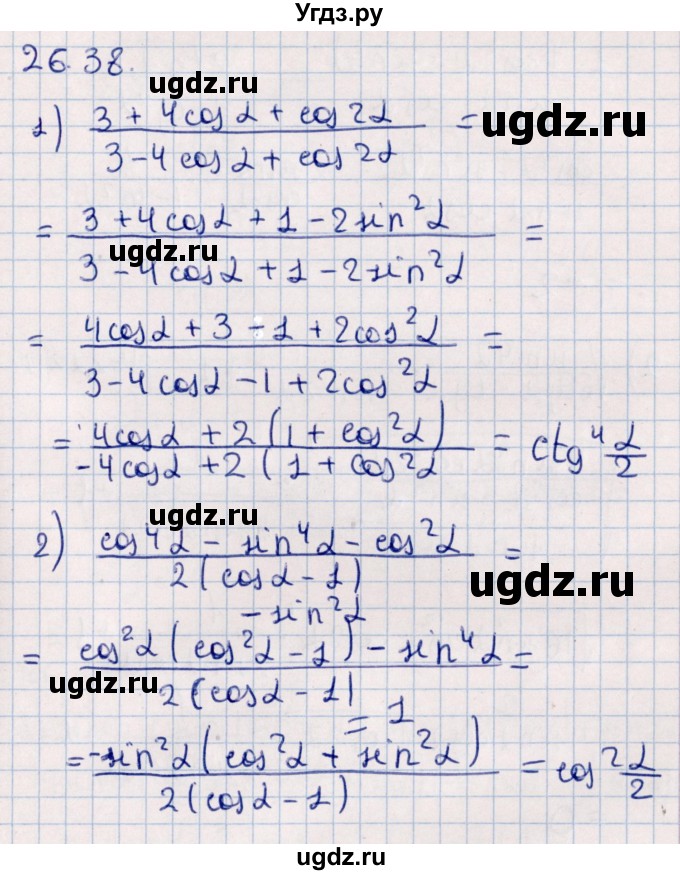 Угдз.ру
26.38.
ugdz.ru
1) (3 + 4cos α + cos 2α)/(3 - 4 cos α + cos 2α) =
ugdz.ru
= (3 + 4cos α + 1 - 2sin²α)/(3 - 4cos α + 1 - 2sin²α) =
ugdz.ru
= (4cos α + 3 - 1 + 2cos²α)/(3 - 4cos α - 1 + 2cos²α) =
= (4cos α + 2(1 + cos²α))/(-4cos α + 2(1 + cos²α) = ctg⁴ α/2
ugdz.ru
2) (cos⁴α - sin⁴α - cos²α)/(2(cos α - 1)) =
ugdz.ru
- sin²α
= (cos²α(cos²α - 1) - sin⁴α)/(2(cos α - 1) =
ugdz.ru
= 1
= (-sin²α(cos²α + sin²α))/(2(cos α - 1)) = cos² α/2
ugdz.ru